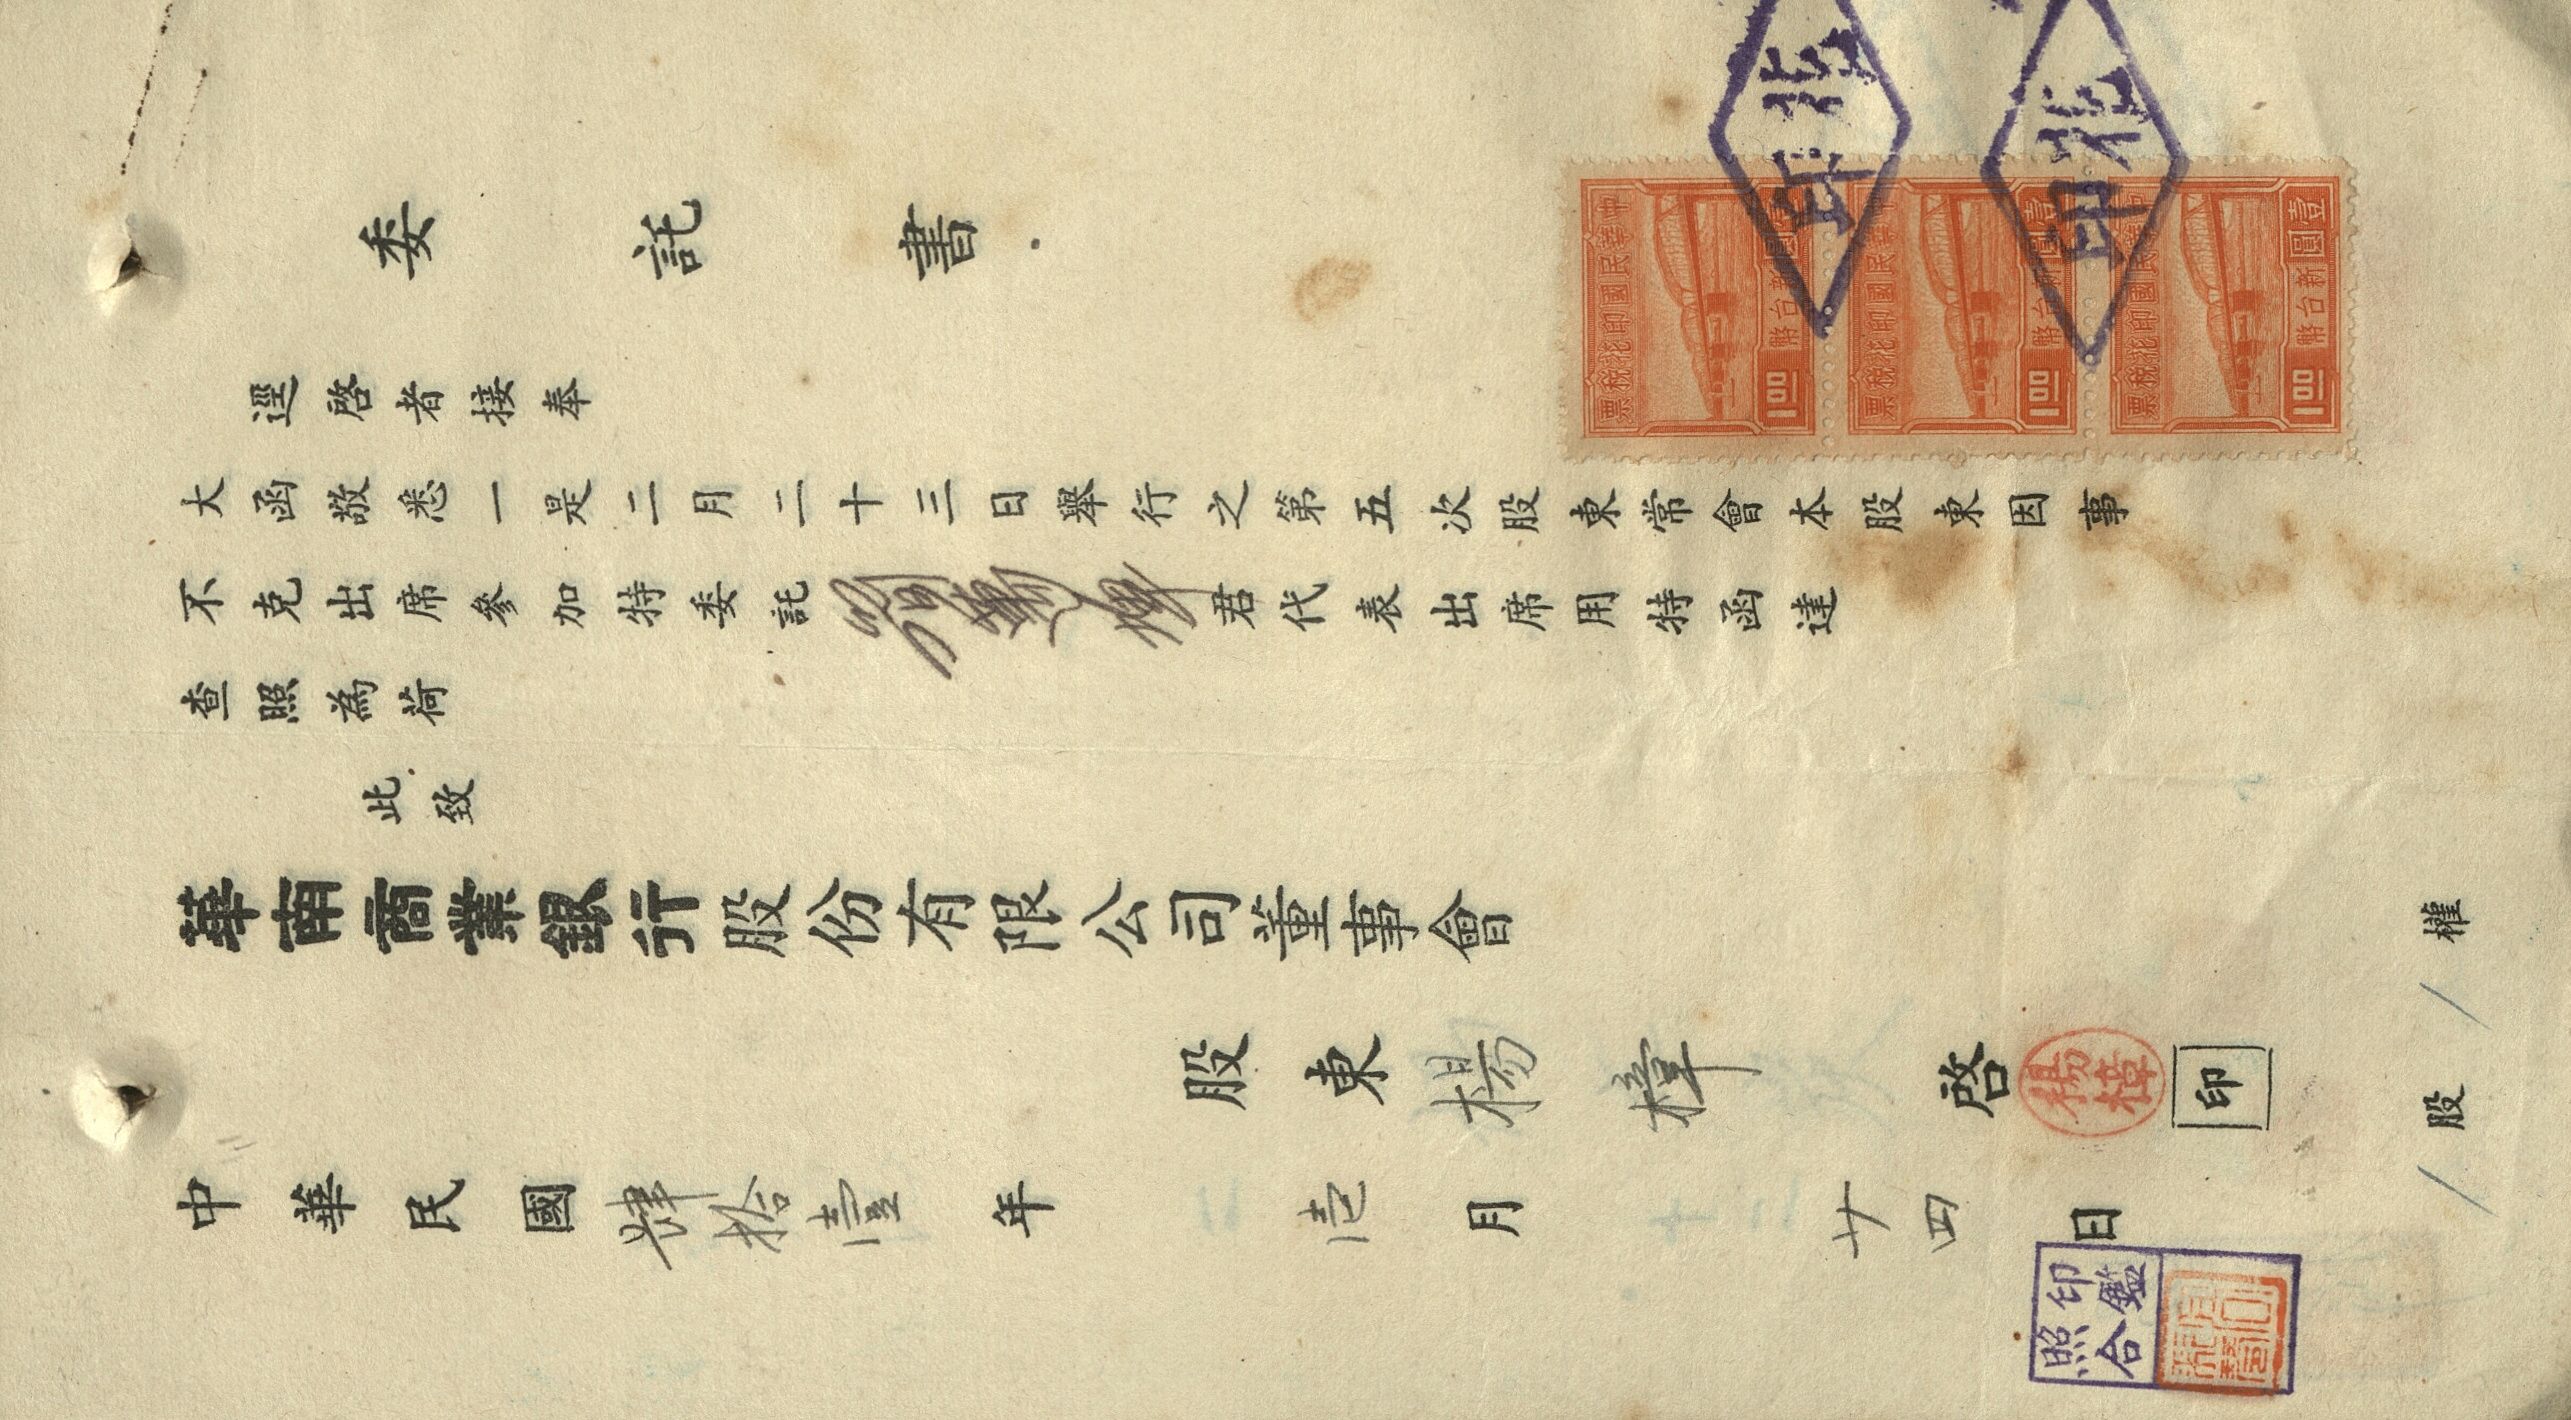 委託書
逕啓者接奉
大函敬悉一是二月二十三日舉行之第五次股東常會本股東因事
不克出席參加特委託
君代表出席用特函達
查照為荷
此致
華南商業銀行股份有限公司董事會
股東楊樟啓
楊樟
印
中華民國肆拾壹年壱月廿四日
/股/權
印鑑
照合
中華民國印花稅票
壹圓新台幣
1.00
中華民國印花稅票
壹圓新台幣
1.00
中華民國印花稅票
壹圓新台幣
1.00